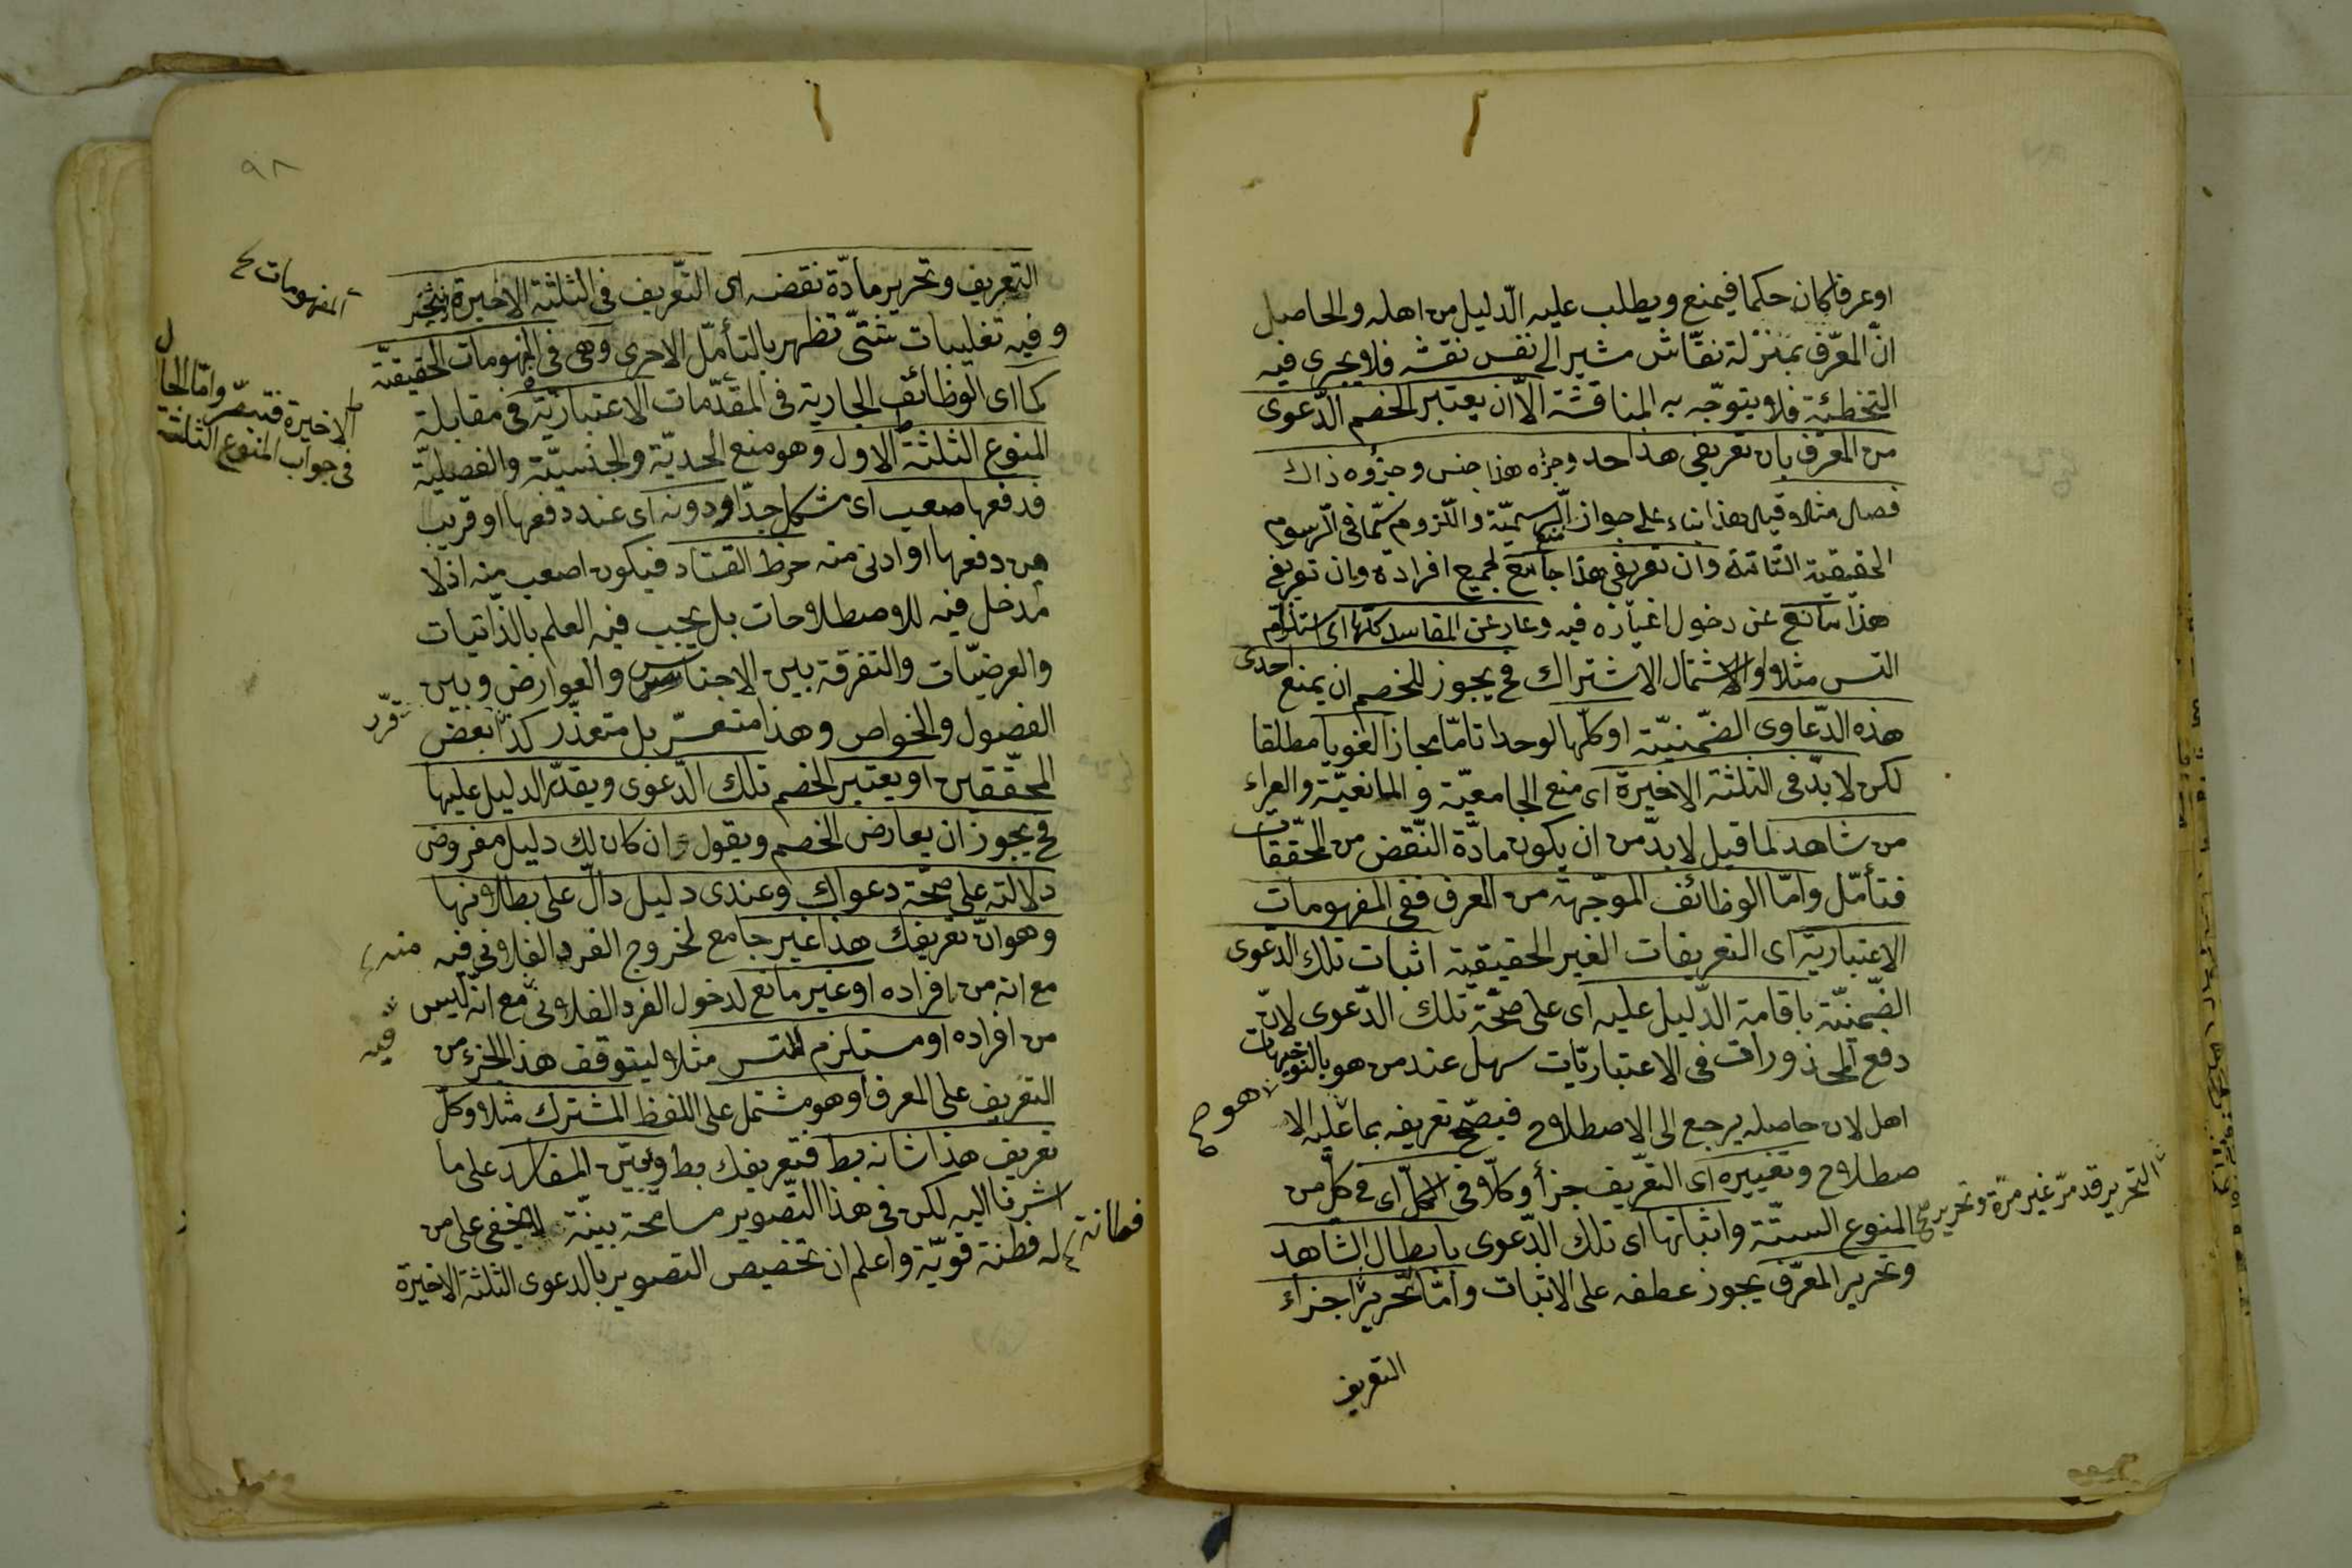 او عرفا كان حكما فيمنع ويطلب عليه الدّليل من اهله والحاصل
انّ المعرّف بمنزلة نقّاش مشير الى نفس نقشه فلا يجرى فيه
التخطئة فلا يتوجّه به المناقشة الّا ان يعتبر الخصم الدّعوى
من المعرّف بان تعريفى هذا حد وجزءه هذا جنس وجزؤه ذاك
فصل مثلا وقيل هذا بناء على جواز الرسميّة واللّزوم سيّما فى الرّسوم
الحقيقية التّامّة وان تعريفى هذا جامع لجميع افراده وان تعريفى
هذا مانع عن دخول اغياره فيه وعار عن المفاسد كلّها اى استلزام
التس مثلا او الاشتمال الاشتراك فح يجوز للخصم ان يمنع احدى
هذه الدّعاوى الضّمنيّة او كلّها لوحدا تامّا مجازا لغويا مطلقا
لكن لا بدّ فى الثلثة الاخيرة اى منع الجامعيّة والمانعيّة والعراء
من شاهد لما قيل لا بدّ من ان يكون مادّة النّقض من المحقّقات
فتأمّل وامّا الوظائف الموجّهة من المعرف ففى المفهومات
الاعتبارية اى التعريفات الغير الحقيقيّة اثبات تلك الدّعوى
الضّمنيّة باقامة الدّليل عليه اى على صحّة تلك الدّعوى لانّ
دفع المحذورات فى الاعتباريّات سهل عند من هو بالتوجيهات
هو صح
اهل لان حاصله يرجع الى الاصطلاح فيصّح تعريفه بما عليه الا
صطلاح وتغييره اى التعريف جزأ وكلّا فى الكلّ اى فى كلّ من
المنوع الستّة واثباتها اى تلك الدّعوى بابطال الشاهد
التحرير قد مرّ غير مرّة وتحرير صح
وتحرير المعرّف يجوز عطفه على الاثبات وامّا تحرير اجزاء
التعريف
٩٨
التعريف وتحرير مادّة نقضه اى التّعريف فى الثلثة الاخيرة
المفهومات
وفيه تغليبات شتّى تظهر بالتأمّل الاحرى وهى فى المفهومات الحقيقيّة
كما اى الوظائف الجارية فى المقدّمات الاعتباريّة فى مقابلة
الاخيرة فتبصّر وامّا الحال
فى جواب المنوع الثلثة
المنوع الثلثة الاول وهو منع الحديّة والجنسيّة والفصليّة
فدفعها صعب اى مشكل جدّا ودونه اى عند دفعها او قريب
من دفعها او ادنى منه خرط القتاد فيكون اصعب منه اذ لا
مدخل فيه للاصطلاحات بل يجب فيه العلم بالذّاتيات
والعرضيّات والتفرقة بين الاجناس والعوارض وبين
الفصول والخواص وهذا متعسّر بل متعذّر كذا بعض
قرّر
المحقّقين او يعتبر الخصم تلك الدّعوى ويقدّر الدليل عليها
فح يجوز ان يعارض الخصم ويقول وان كان لك دليل مفروض
دلالته على صحّة دعواك وعندى دليل دالّ على بطلانها
وهو انّ تعريفك هذا غير جامع لخروج الفرد الفلانى فيه
منه
مع انه من افراده او غير مانع لدخول الفرد الفلانى مع انّه ليس
فيه
من افراده او مستلزم للتس مثلا ليتوقف هذا الجزء من
التعريف على المعرف او هو مشتمل على اللفظ المشترك مثلا وكلّ
تعريف هذا شانه بط فتعريفك بط وبيّن المفاسد على ما
اشرنا اليه لكن فى هذا التّصوير مسامحة بيّنة لا يخفى على من
له فطنة قويّة واعلم ان تخصيص التصوير بالدعوى الثلثة الاخيرة
فطانة